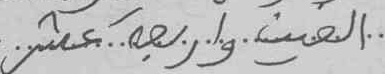 الفين واربعة عشر